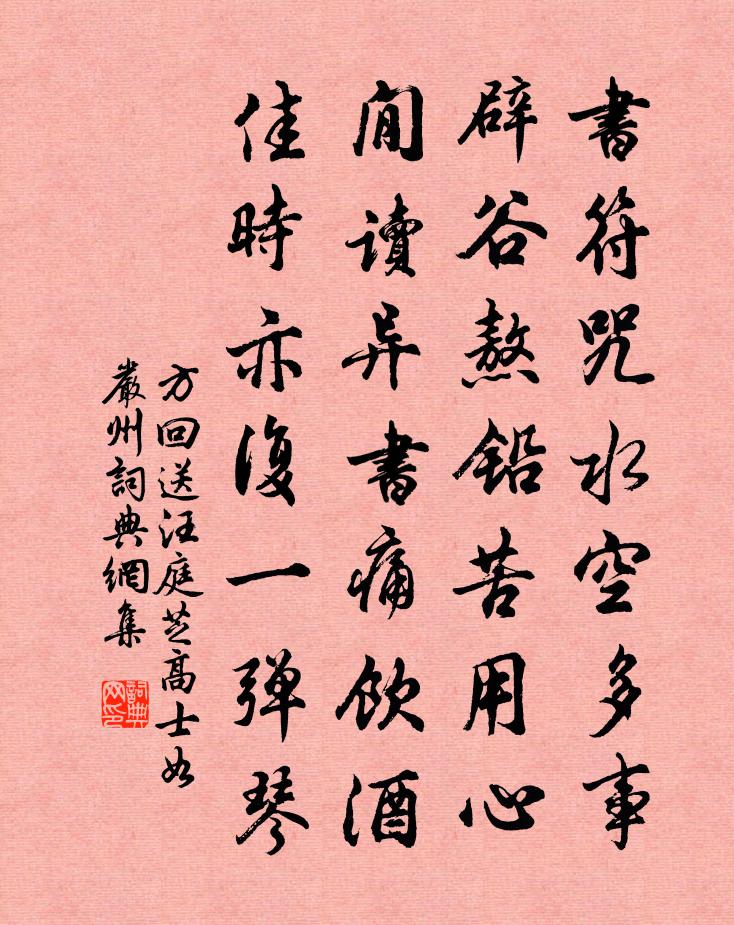 書符咒水空多事
辟谷熬鉛苦用心
閒讀异書痛飲酒
佳時亦復一弹琴
方回送汪庭芝高士如
嚴州詞典網集
詞典
网印